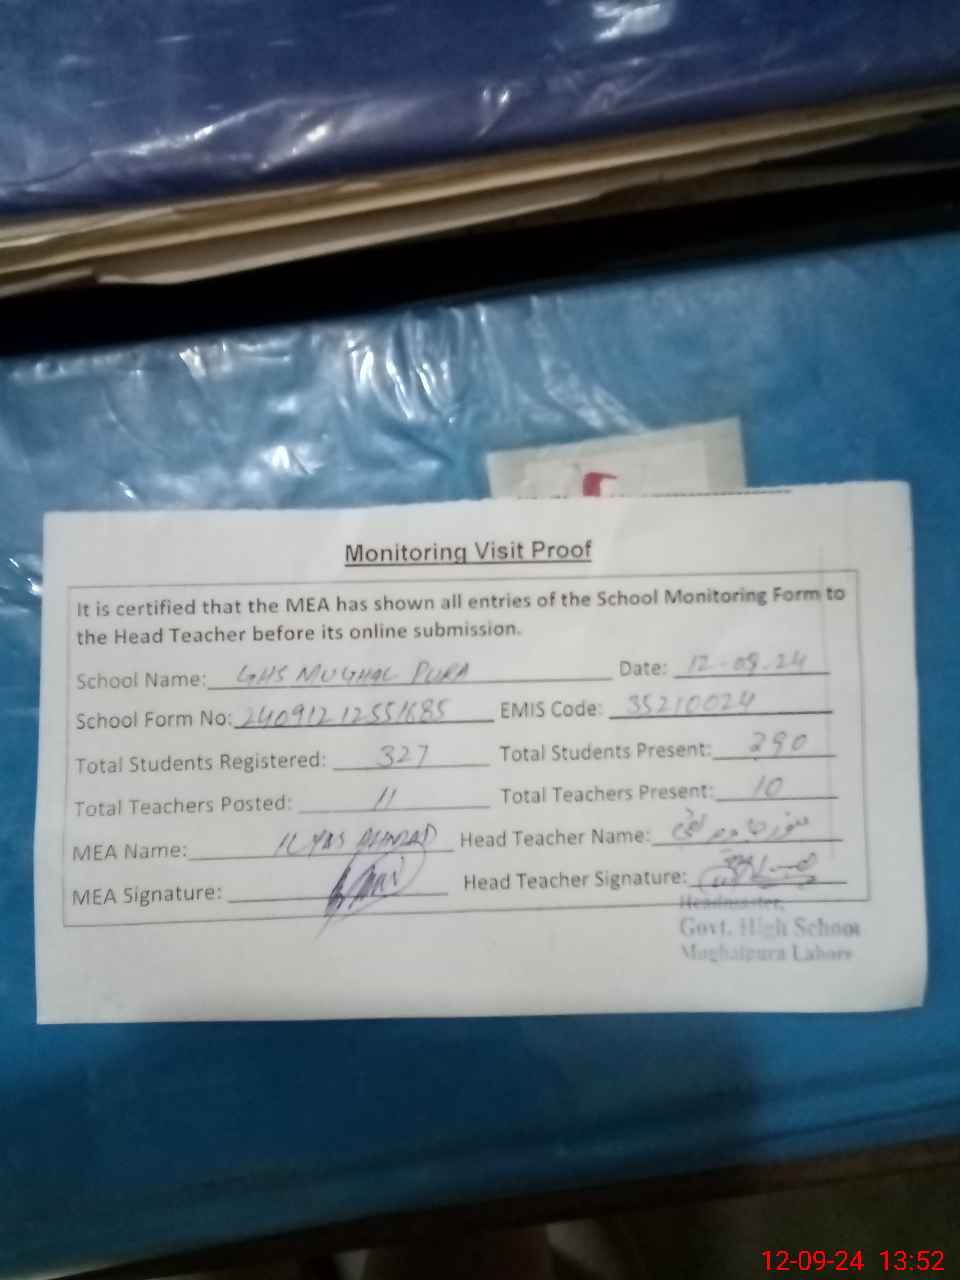 Monitoring Visit Proof
It is certified that the MEA has shown all entries of the School Monitoring Form to
the Head Teacher before its online submission.
School Name: GHS MUGHAL PURA Date: 12-09-24
School Form No: 24091212551685 EMIS Code: 35210024
Total Students Registered: 327 Total Students Present: 290
Total Teachers Posted: 11 Total Teachers Present: 10
MEA Name: ILYAS AHMAD Head Teacher Name:
MEA Signature: Head Teacher Signature:
Headmaster,
Govt. High School
Mughalpura Lahore
12-09-24 13:52